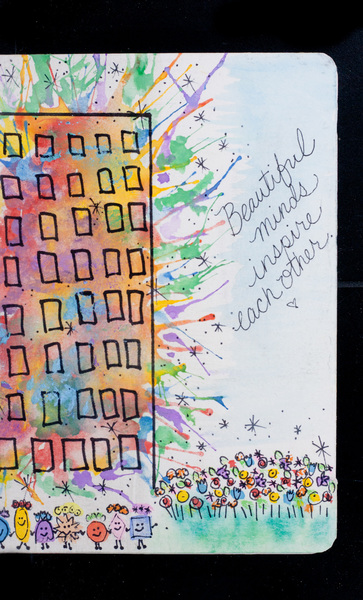 Beautiful
minds
inspire
each other.